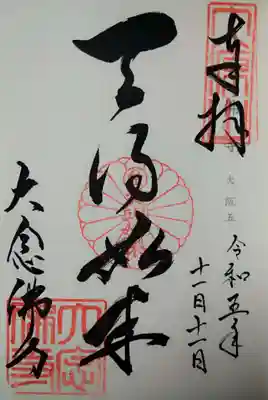 奉拝
大阪五
令和五年
十一月十一日
天得如来
大念佛寺